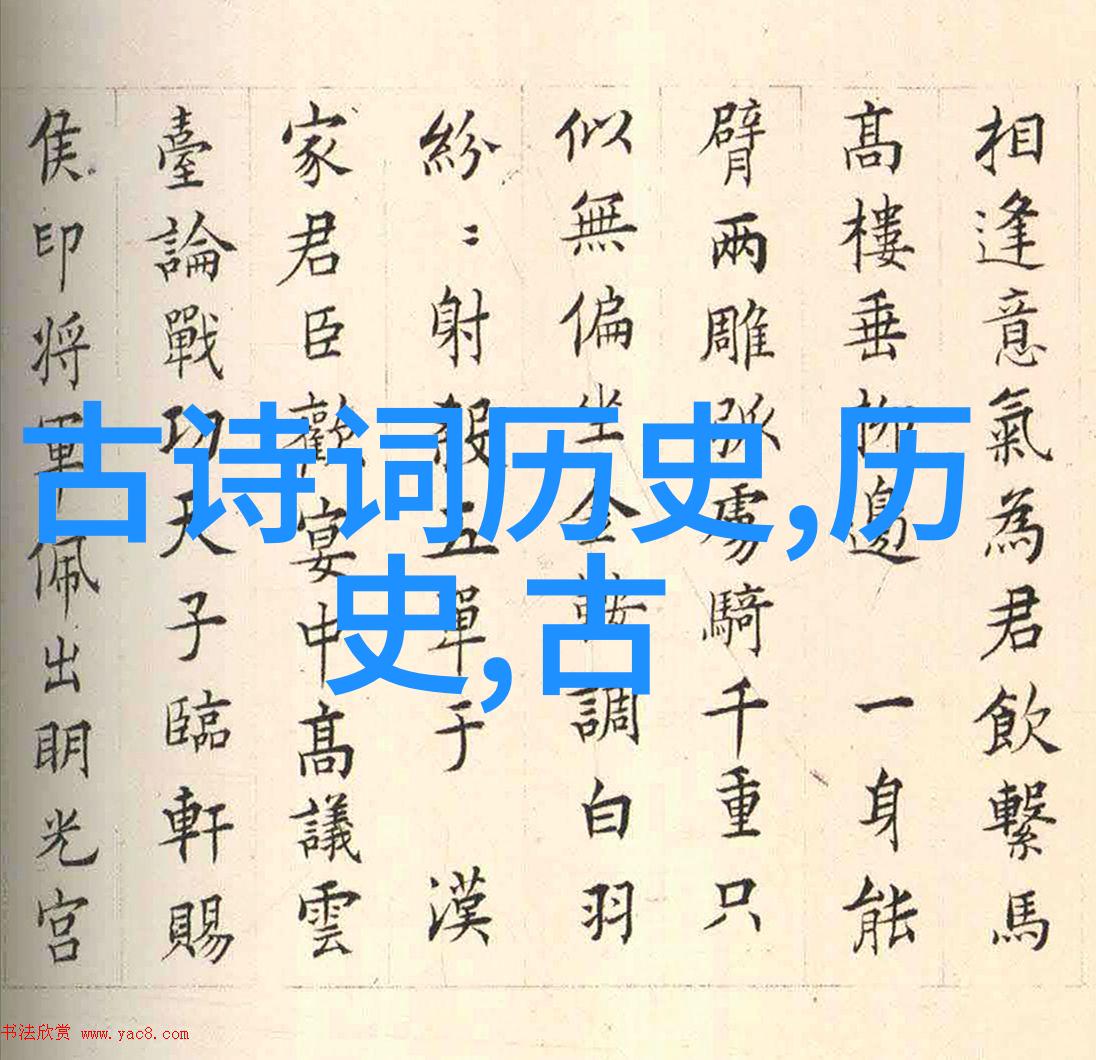 相逢意氣為君飲繫馬
髙樓垂柳邊 一身能
臂兩雕弧虜騎千重只
似無偏坐金鞍調白羽
紛〻射殺五單于 漢
家君臣歡宴中髙議雲
臺論戰功天子臨軒賜
侯印将軍佩出明光宮
古诗词历史,历
史,古
书法欣赏 www.yac8.com